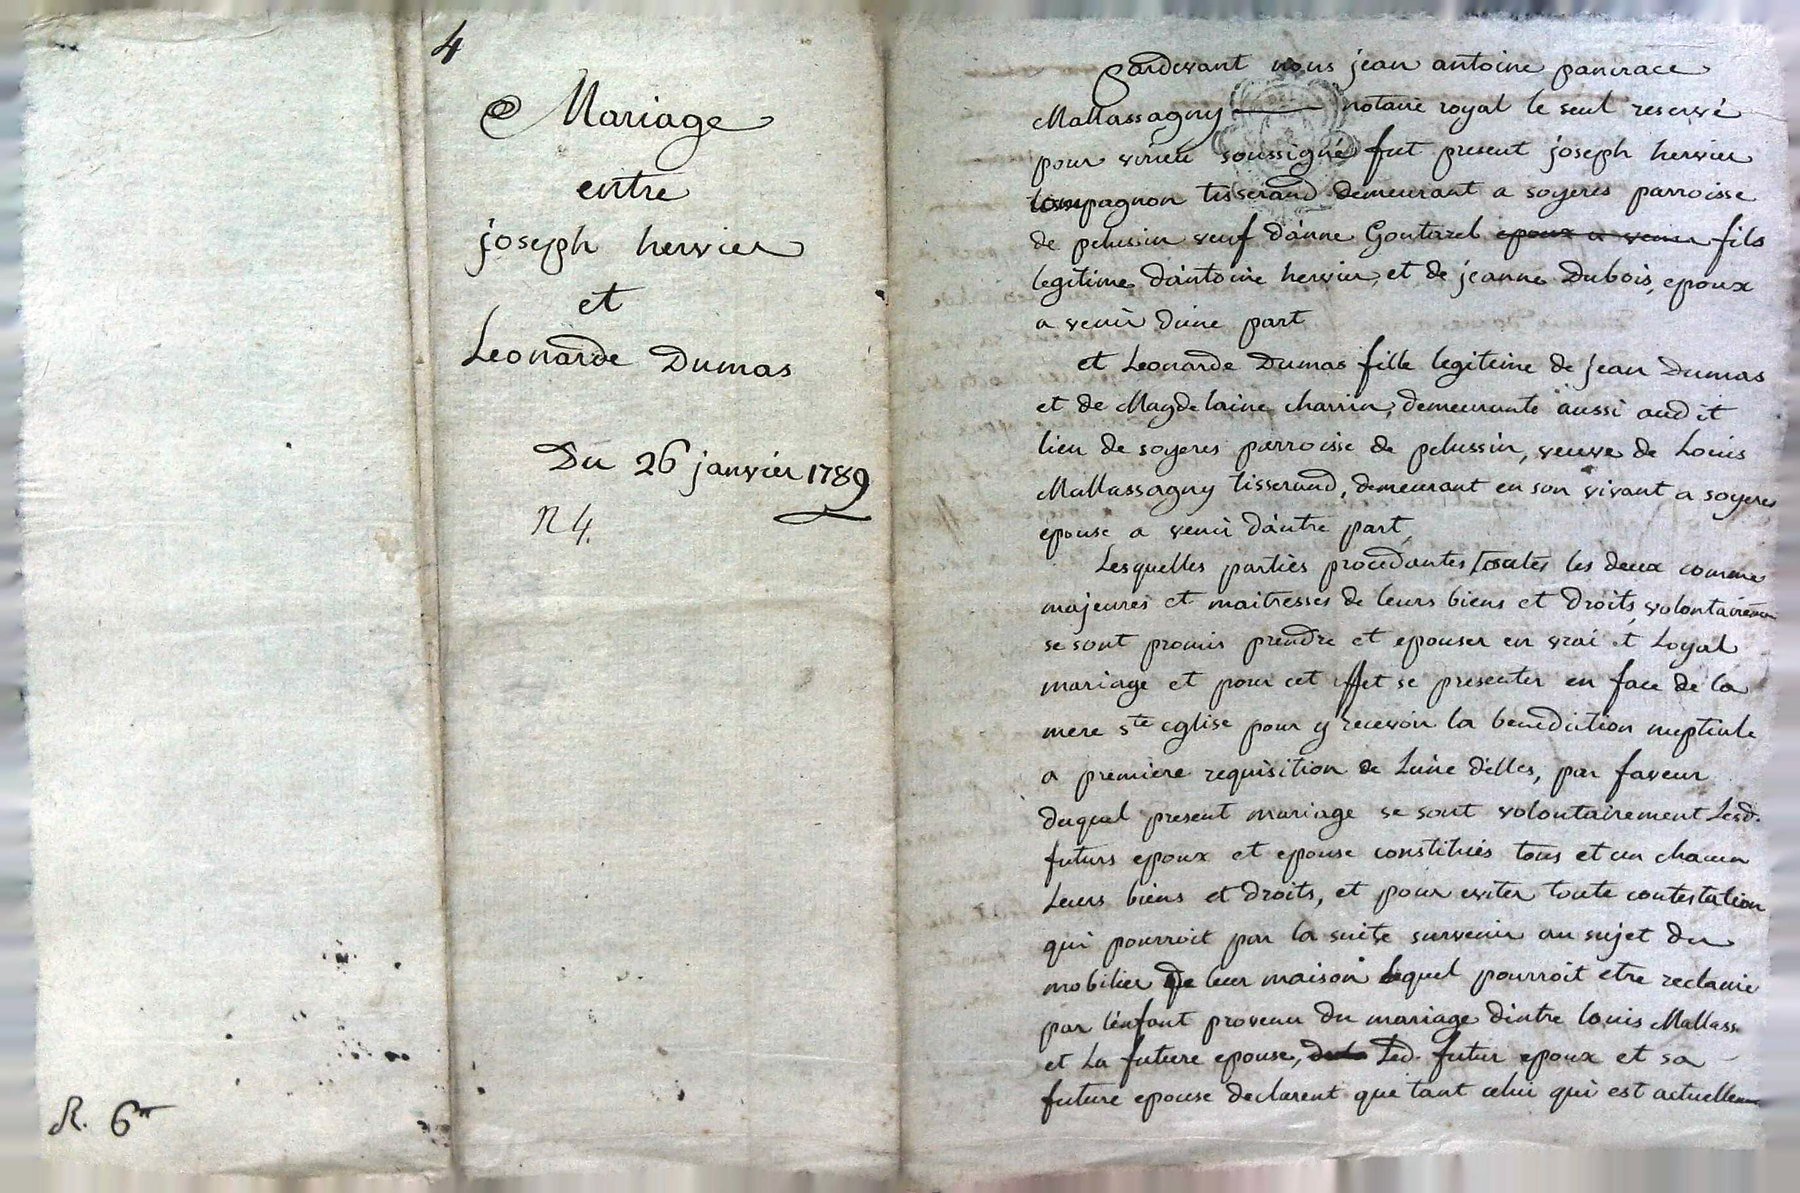 4
Mariage
entre
joseph hervier
et
Leonarde Dumas
Du 26 janvier 1789
n 4.
R. 6tt
Pardevant nous jean antoine pancrace
Mallassagny notaire royal le seul reservé
pour virieu soussigné fut present joseph hervier
compagnon tisserand demeurant a soyeres parroisse
de pelussin veuf d'anne Goutarel epoux a venir fils
legitime d'antoine hervier, et de jeanne Dubois, epoux
a venir d'une part
et Leonarde Dumas fille legitime de jean Dumas
et de Magdelaine charrin, demeurante aussi audit
lieu de soyeres parroisse de pelussin, veuve de Louis
Mallassagny tisserand, demeurant en son vivant a soyeres
epouse a venir d'autre part,
Lesquelles parties procedantes toutes les deux comme
majeures et maitresses de leurs biens et droits, volontairemen
se sont promis prendre et epouser en vrai et Loyal
mariage et pour cet effet se presenter en face de la
mere ste eglise pour y recevoir la benediction nuptiale
a premiere requisition de Lune d'elles, par faveur
duquel present mariage se sont volontairement Lesd.
futurs epoux et epouse constitués tous et un chacun
Leurs biens et droits, et pour eviter toute contestation
qui pourroit par la suite survenir au sujet du
mobilier de leur maison lequel pourroit etre reclamé
par l'enfant provenu du mariage d'entre louis Mallass
et La future epouse, Led. futur epoux et sa
future epouse declarent que tant celui qui est actuellem